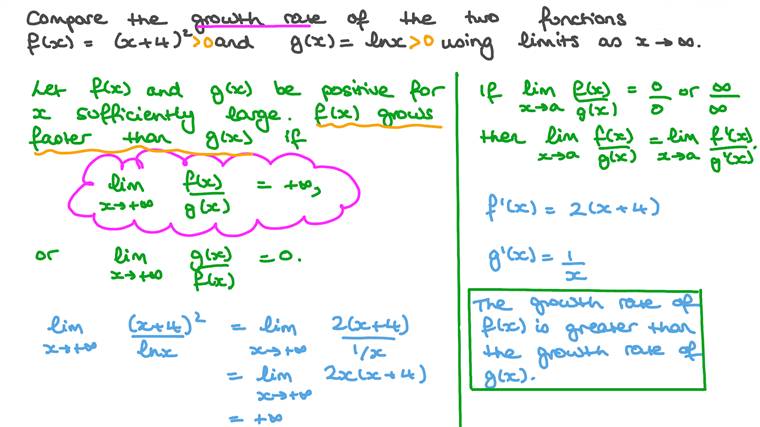 Compare the growth rate of the two functions
f(x) = (x+4)² >0 and g(x) = lnx >0 using limits as x → ∞.
Let f(x) and g(x) be positive for
x sufficiently large. f(x) grows
faster than g(x) if
lim x→+∞ f(x)/g(x) = +∞,
or lim x→+∞ g(x)/f(x) = 0.
lim x→+∞ (x+4)²/lnx = lim x→+∞ 2(x+4)/1/x
= lim x→+∞ 2x(x+4)
= +∞
If lim x→a f(x)/g(x) = 0/0 or ∞/∞
then lim x→a f(x)/g(x) = lim x→a f'(x)/g'(x).
f'(x) = 2(x+4)
g'(x) = 1/x
The growth rate of
f(x) is greater than
the growth rate of
g(x).